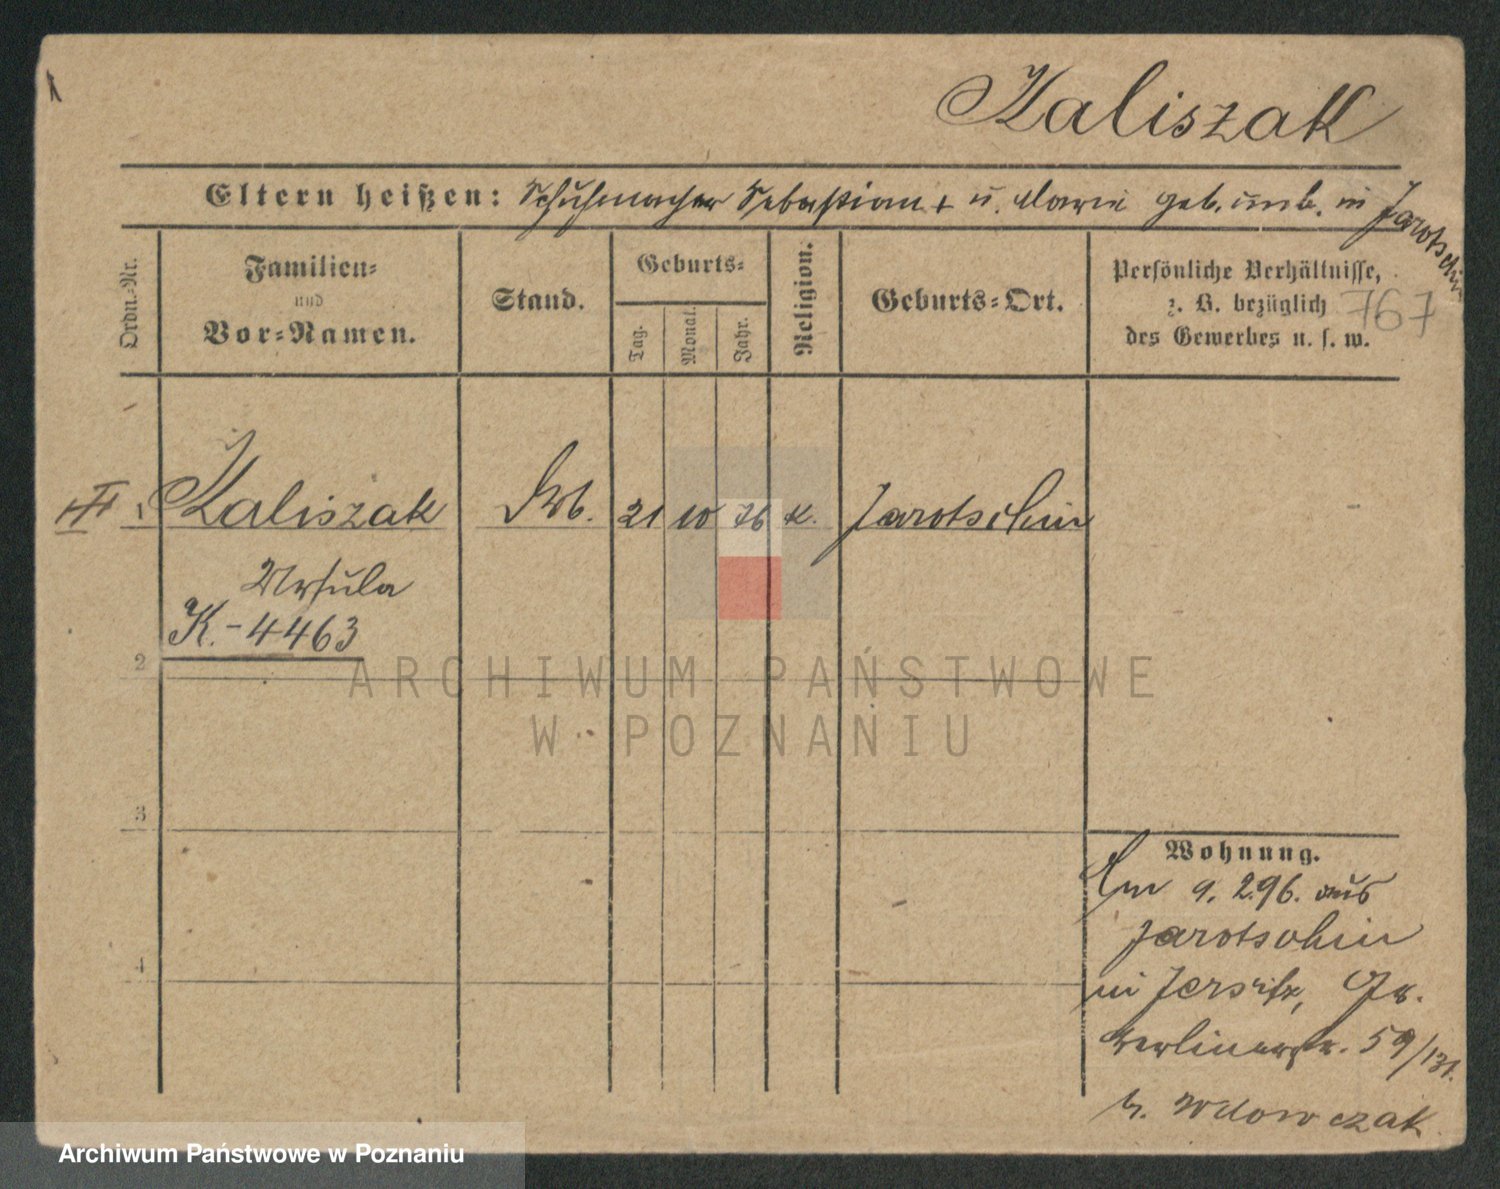 Kaliszak
Eltern heißen: Schuhmacher Sebastian + u. Marie geb. unb. in Jarotschin
Ordn.-Nr.
Familien-
und
Vor-Namen.
Stand.
Geburts-
Tag.
Monat.
Jahr.
Religion.
Geburts-Ort.
Persönliche Verhältnisse,
z. B. bezüglich
des Gewerbes u. s. w.
767
Kaliszak 21 10 76 k. Jarotschin
Ursula
K.-4463
2
3
4
Wohnung.
Am 9. 2 96. aus
Jarotschin
in Jersitz, Gr.
Berlinerstr. 59/131.
b. Wdowczak
ARCHIWUM PAŃSTWOWE
W POZNANIU
Archiwum Państwowe w Poznaniu